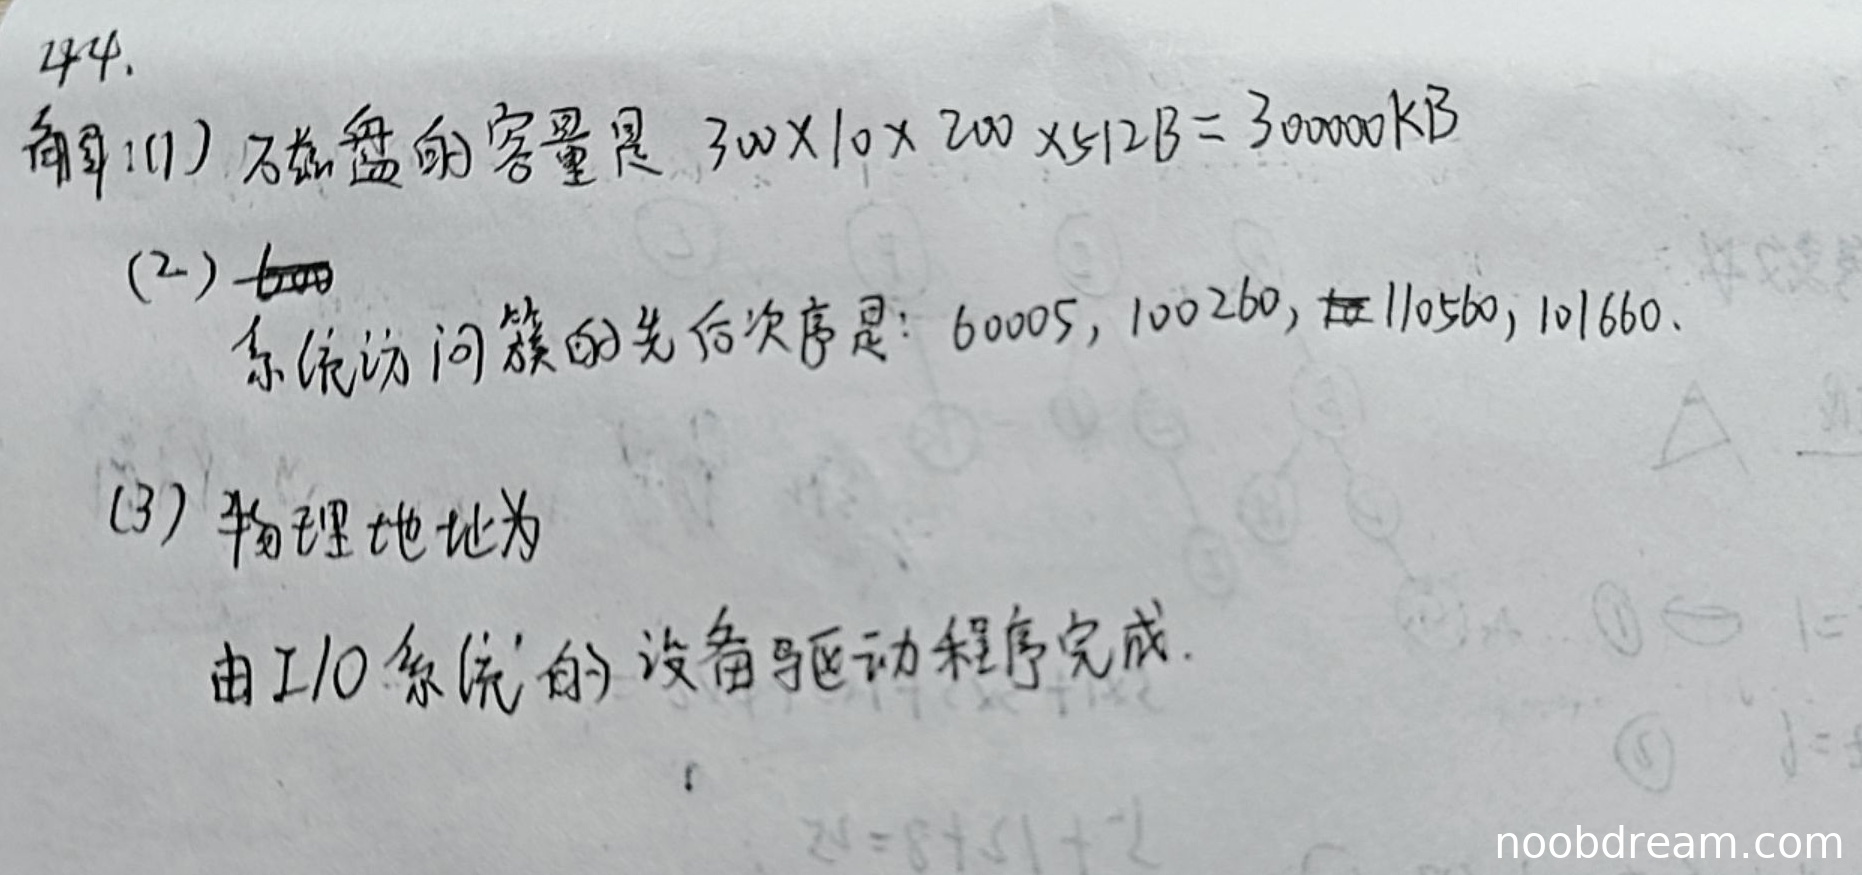 44.
解:(1) 磁盘的容量是 300×10×200×512B=300000KB
(2)
系统访问簇的先后次序是: 60005, 100260, 110560, 101660.
(3) 物理地址为
由I/O系统的设备驱动程序完成.
noobdream.com